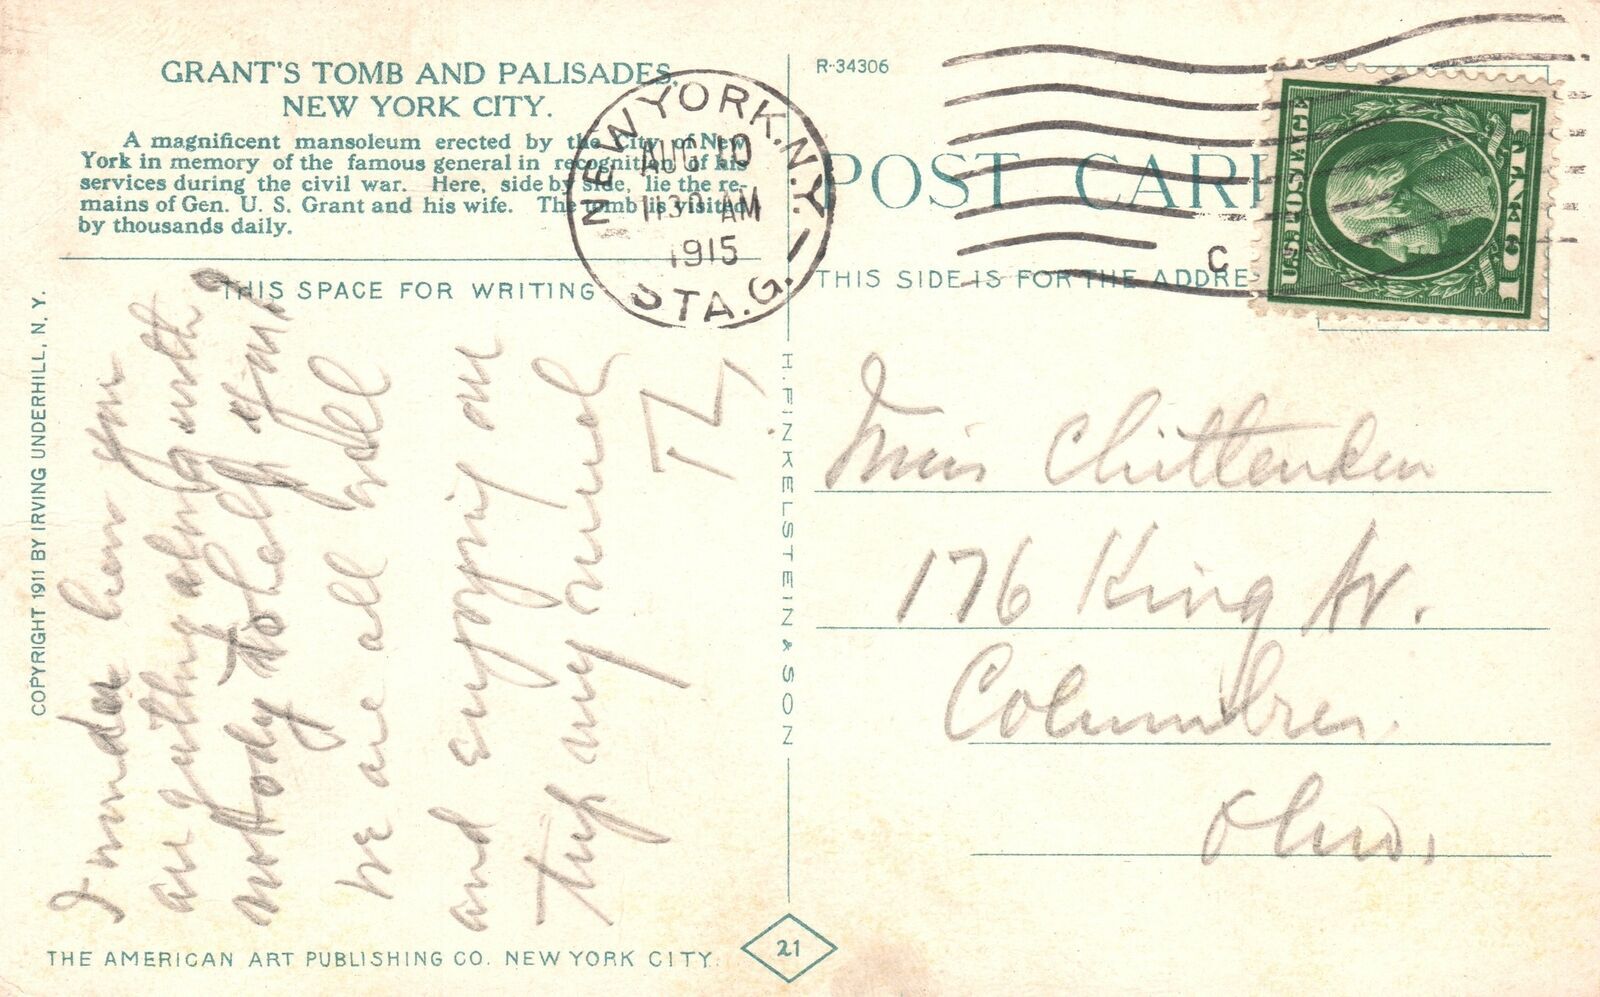 GRANT'S TOMB AND PALISADES,
NEW YORK CITY.
A magnificent mansoleum erected by the City of New
York in memory of the famous general in recognition of his
services during the civil war. Here, side by side, lie the re-
mains of Gen. U. S. Grant and his wife. The tomb is visited
by thousands daily.
THIS SPACE FOR WRITING
I wonder how you
are getting along with
nobody to help you?
We are all well
and enjoying our
trip very much
TL
COPYRIGHT 1911 BY IRVING UNDERHILL, N. Y.
THE AMERICAN ART PUBLISHING CO. NEW YORK CITY.
21
H. FINKELSTEIN & SON
NEW YORK, N.Y.
AUG 10
11 30 AM
1915
STA. G.
R-34306
POST CARD
C
THIS SIDE IS FOR THE ADDRE
U.S. POSTAGE
1 CENT 1
Miss Chittenden
176 King Av.
Columbus
Ohio.